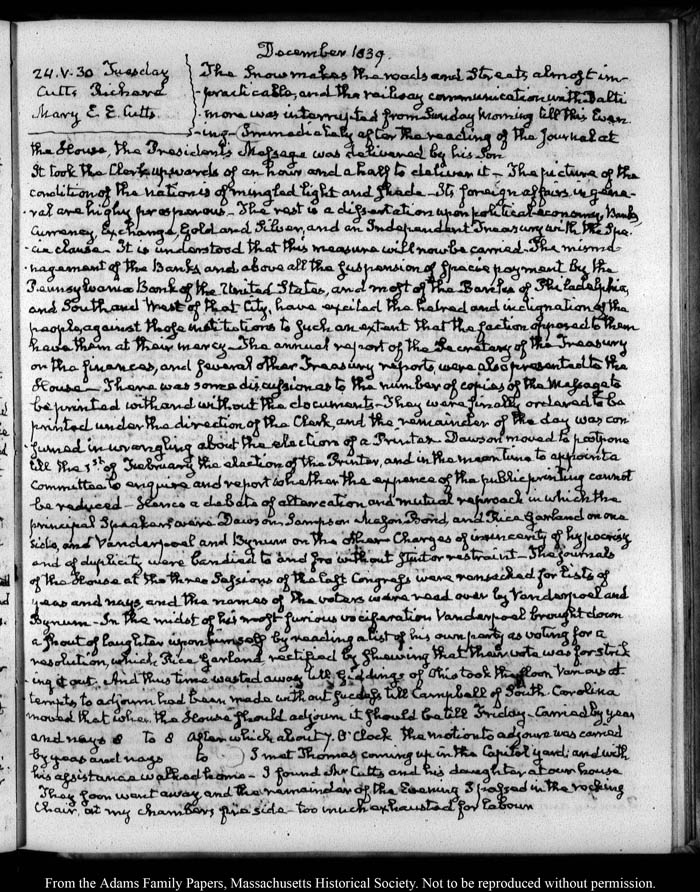 December 1839.
24. V. 30 Tuesday
Cutts Richard
Mary E. E. Cutts.
The Snow makes the roads and Streets almost im-
-practicable, and the railway communication with Balti
-more was interrupted from Sunday Morning till this Even
-ing. Immediately after the reading of the Journal at
the House, the President's Message was delivered by his Son
It took the Clerk upwards of an hour and a half to deliver it – The picture of the
condition of the nation is of mingled light and shade – Its foreign affairs in gene-
-ral are highly prosperous – The rest is a dissertation upon political economy, Banks,
Currency, Exchange, Gold and Silver, and an Independent Treasury with the Spe-
-cie clause – It is understood that this measure will now be carried – The misma-
-nagement of the Banks, and above all the suspension of specie payment by the
Pennsylvania Bank of the United States, and most of the Banks of Philadelphia,
and South and West of that City, have excited the hatred and indignation of the
people, against those institutions to such an extent that the faction opposed to them
have them at their mercy – The annual report of the Secretary of the Treasury
on the finances, and several other Treasury reports were also presented to the
House – There was some discussion as to the number of copies of the Message to
be printed with and without the documents – They were finally ordered to be
printed under the direction of the Clerk, and the remainder of the day was con
sumed in wrangling about the election of a Printer – Dawson moved to postpone
till the 1st of February the election of the Printer, and in the meantime to appoint a
Committee to enquire and report whether the expence of the public printing cannot
be reduced – Hence a debate of altercation and mutual reproach in which the
principal Speakers were Dawson, Sampson Mason, Bond, and Rice Garland on one
side, and Vanderpoel and Bynum on the other – Charges of insincerity of hypocrisy
and of duplicity were bandied to and fro without stint or restraint – The journals
of the House at the three Sessions of the last Congress were ransacked for lists of
yeas and nays, and the names of the voters were read over by Vanderpoel and
Bynum – In the midst of his most furious vociferation Vanderpoel brought down
a shout of laughter upon himself by reading a list of his own party as voting for a
resolution, which Rice Garland rectified by shewing that their vote was for strik
-ing it out. And thus time wasted away till Giddings of Ohio took the floor. Various at-
-tempts to adjourn had been made without success till Campbell of South-Carolina
moved that when the House should adjourn it should be till Friday – Carried by yeas
and nays 8 to 8 after which about 7. O'Clock the motion to adjourn was carried
by yeas and nays to I met Thomas coming up in the Capitol yard; and with
his assistance walked home – I found Mr Cutts and his daughter at our house
They soon went away, and the remainder of the Evening I passed in the rocking
Chair, at my chamber fire side – too much exhausted for labour
From the Adams Family Papers, Massachusetts Historical Society. Not to be reproduced without permission.